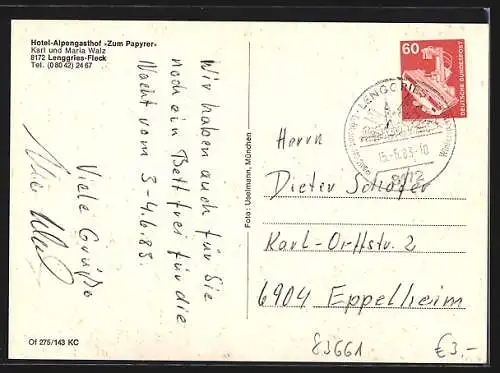 Hotel-Alpengasthof »Zum Papyrer«
Karl und Maria Walz
8172 Lenggries-Fleck
Tel. (0 80 42) 24 67
Wir haben auch für Sie
noch ein Bett frei für die
Nacht vom 3-4.6.83.
Viele Grüße
Of 275/143 KC
Foto: Uselmann, München
60
DEUTSCHE BUNDESPOST
LENGGRIES
15.-6.83.-10
8172
Herrn
Dieter Schäfer
Karl-Orffstr. 2
6904 Eppelheim
83661
€3,-